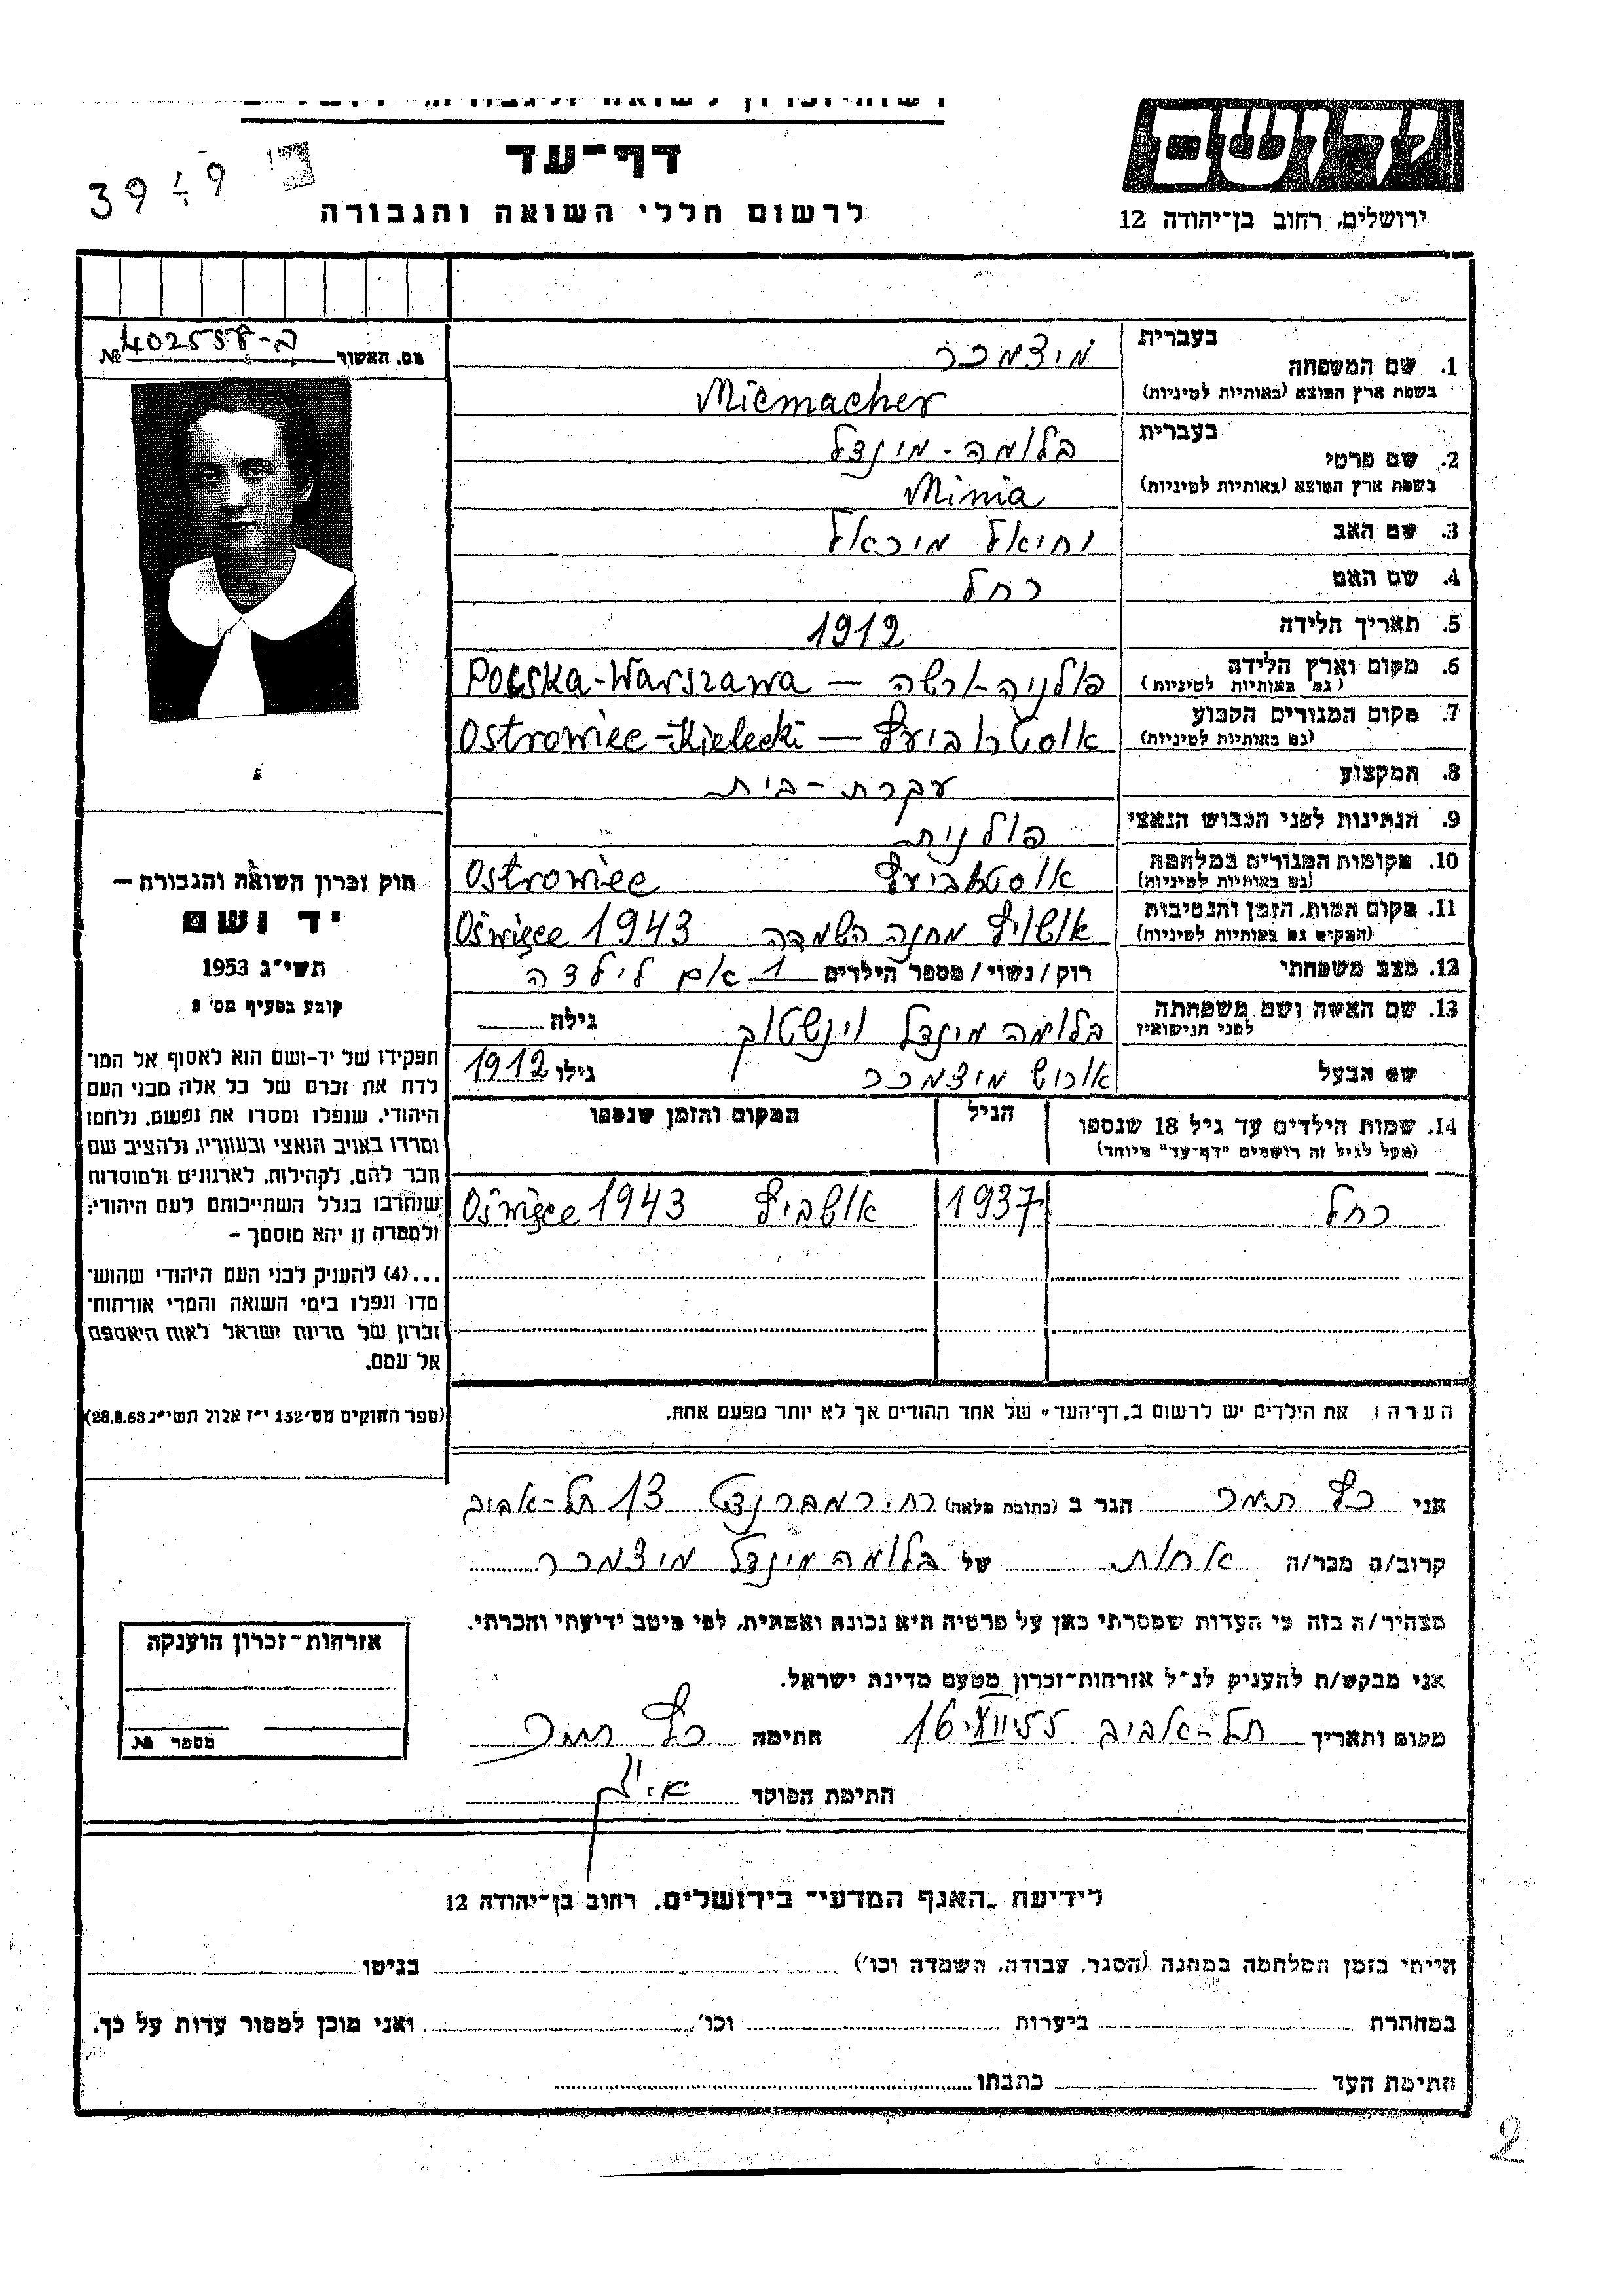 דף־עד
לרשום חללי השואה והגבורה
ידושם
ירושלים, רחוב בן־יהודה 12
מס. האשור № 402558-ב
בעברית
1. שם המשפחה מיצמכר
בשפת ארץ המוצא (באותיות לטיניות) Micmacher
בעברית
2. שם פרטי בלומה-מינדל
בשפת ארץ המוצא (באותיות לטיניות) Minia
3. שם האב יחיאל מיכאל
4. שם האם רחל
5. תאריך הלידה 1912
6. מקום וארץ הלידה פולניה-ורשה — Polska-Warszawa
(גם באותיות לטיניות)
7. מקום המגורים הקבוע אוסטרוביעץ — Ostrowiec-Kielecki
(גם באותיות לטיניות)
8. המקצוע עקרת-בית
9. הנתינות לפני הכבוש הנאצי פולנית
10. מקומות המגורים במלחמה אוסטרוביעץ Ostrowiec
(גם באותיות לטיניות)
11. מקום המות, הזמן והנסיבות אושויץ מחנה השמדה 1943 Oświęce
(המקום גם באותיות לטיניות)
12. מצב משפחתי רוק/נשוי/מספר הילדים 1 אם לילדה
13. שם האשה ושם משפחתה בלומה מינדל וינשטוק גילה
לפני הנישואין
שם הבעל מיצמכר גילו 1912
14. שמות הילדים עד גיל 18 שנספו הגיל המקום והזמן שנספו
(מעל לגיל זה רושמים "דף־עד" מיוחד)
רחל 1937 אושביץ 1943 Oświęce
הערה: את הילדים יש לרשום ב„דף־העד" של אחד ההורים אך לא יותר מפעם אחת.
חוק זכרון השואה והגבורה —
יד ושם
תשי״ג 1953
קובע בסעיף מס' 2
תפקידו של יד-ושם הוא לאסוף אל המו־
לדת את זכרם של כל אלה מבני העם
היהודי, שנפלו ומסרו את נפשם, נלחמו
ומרדו באויב הנאצי ובעוזריו, ולהציב שם
וזכר להם, לקהילות, לארגונים ולמוסדות
שנחרבו בגלל השתייכותם לעם היהודי;
ולמטרה זו יהא מוסמך –
...(4) להעניק לבני העם היהודי שהוש־
מדו ונפלו בימי השואה והמרי אזרחות־
זכרון של מדינת ישראל לאות היאספם
אל עמם.
(ספר החוקים מס' 132 י״ז אלול תשי״ג 28.8.53)
אני כץ תמר הגר ב (כתובת מלאה) רח. רמברנדט 13 תל-אביב
קרוב/ה מכר/ה אחות של בלומה מינדל מיצמכר
מצהיר/ה בזה כי העדות שמסרתי כאן על פרטיה היא נכונה ואמתית, לפי מיטב ידיעתי והכרתי.
אני מבקש/ת להעניק לנ״ל אזרחות־זכרון מטעם מדינת ישראל.
מקום ותאריך תל-אביב חתימה כץ תמר
חתימת הפוקד
אזרחות־זכרון הוענקה
מספר №
לידיעת „האגף המדעי" בירושלים, רחוב בן־יהודה 12
הייתי בזמן המלחמה במחנה (הסגר, עבודה, השמדה וכו') בגיטו
במחתרת ביערות וכו' ואני מוכן למסור עדות על כך.
חתימת העד כתבתו
2